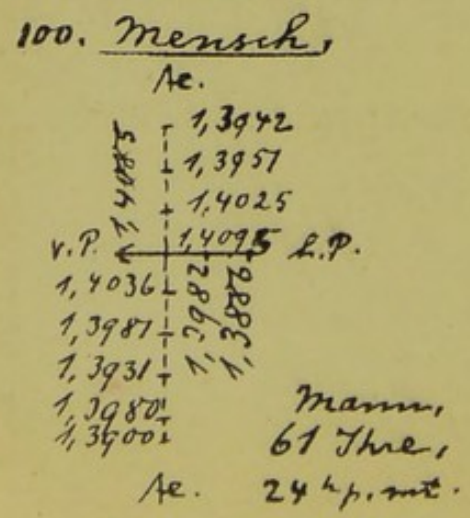 100. Mensch,
Ae.
1,3942
1,3951
1,4025
1,4095
1,4085
v.P. h.P.
1,4036
1,3981
1,3931
1,3980
1,3900
1,3882
Ae.
Mann,
61 Jhre,
24 h p. mt.